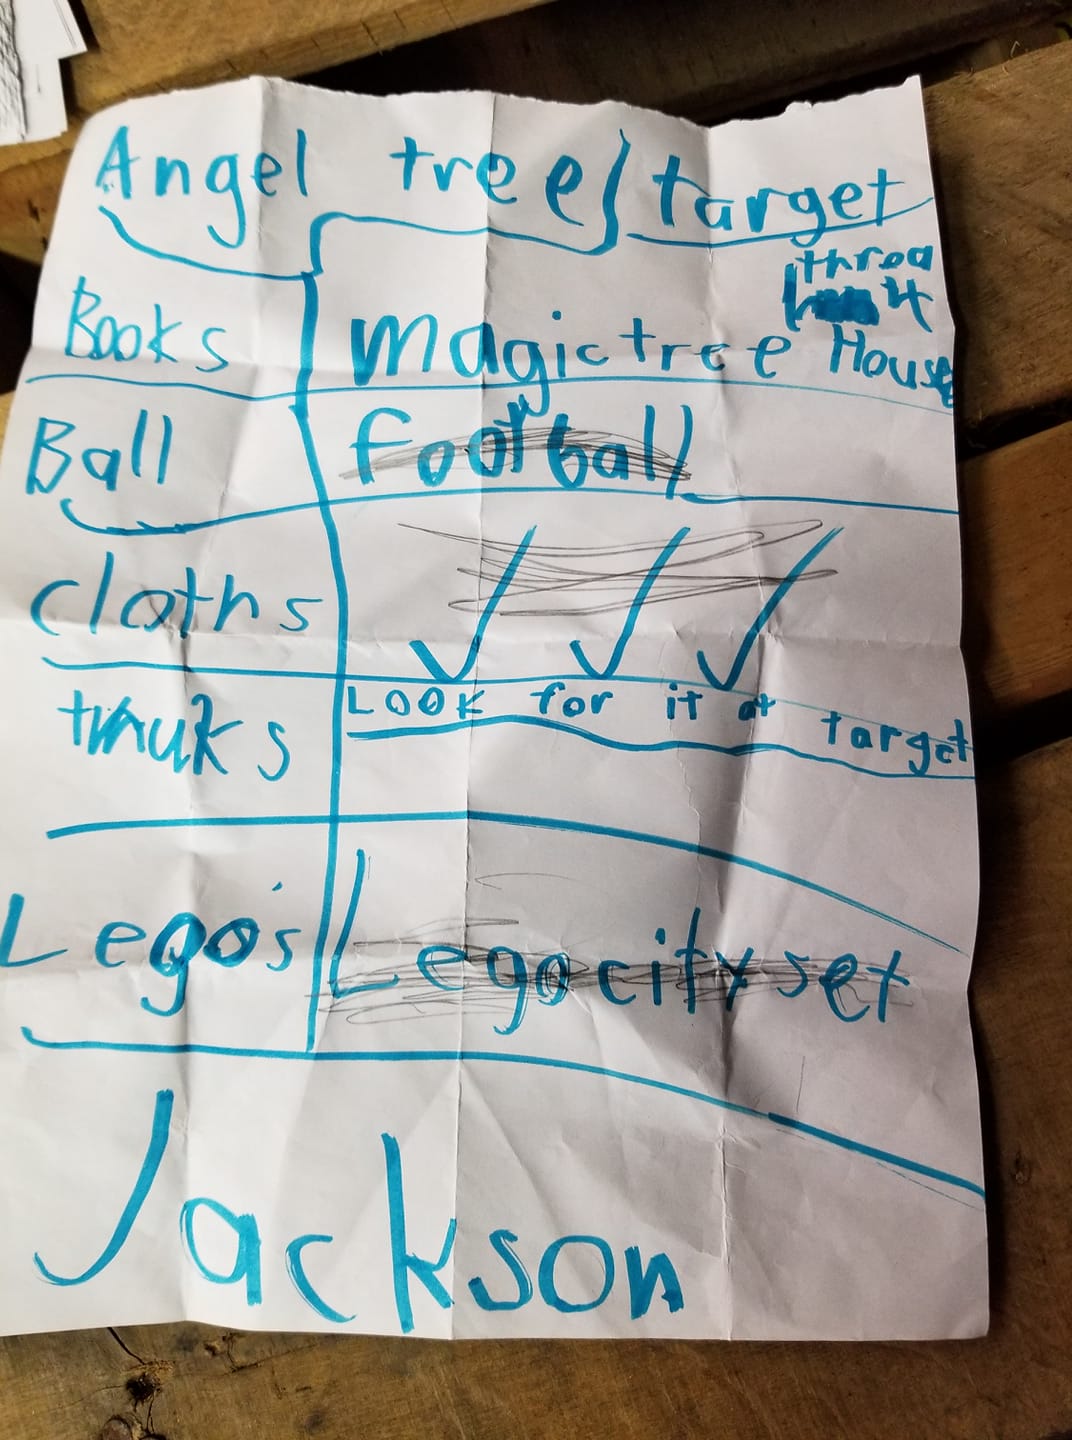 Angel tree target
Books magic tree House
Ball football
cloths
Look for it at target
Lego's Lego city set
Jackson